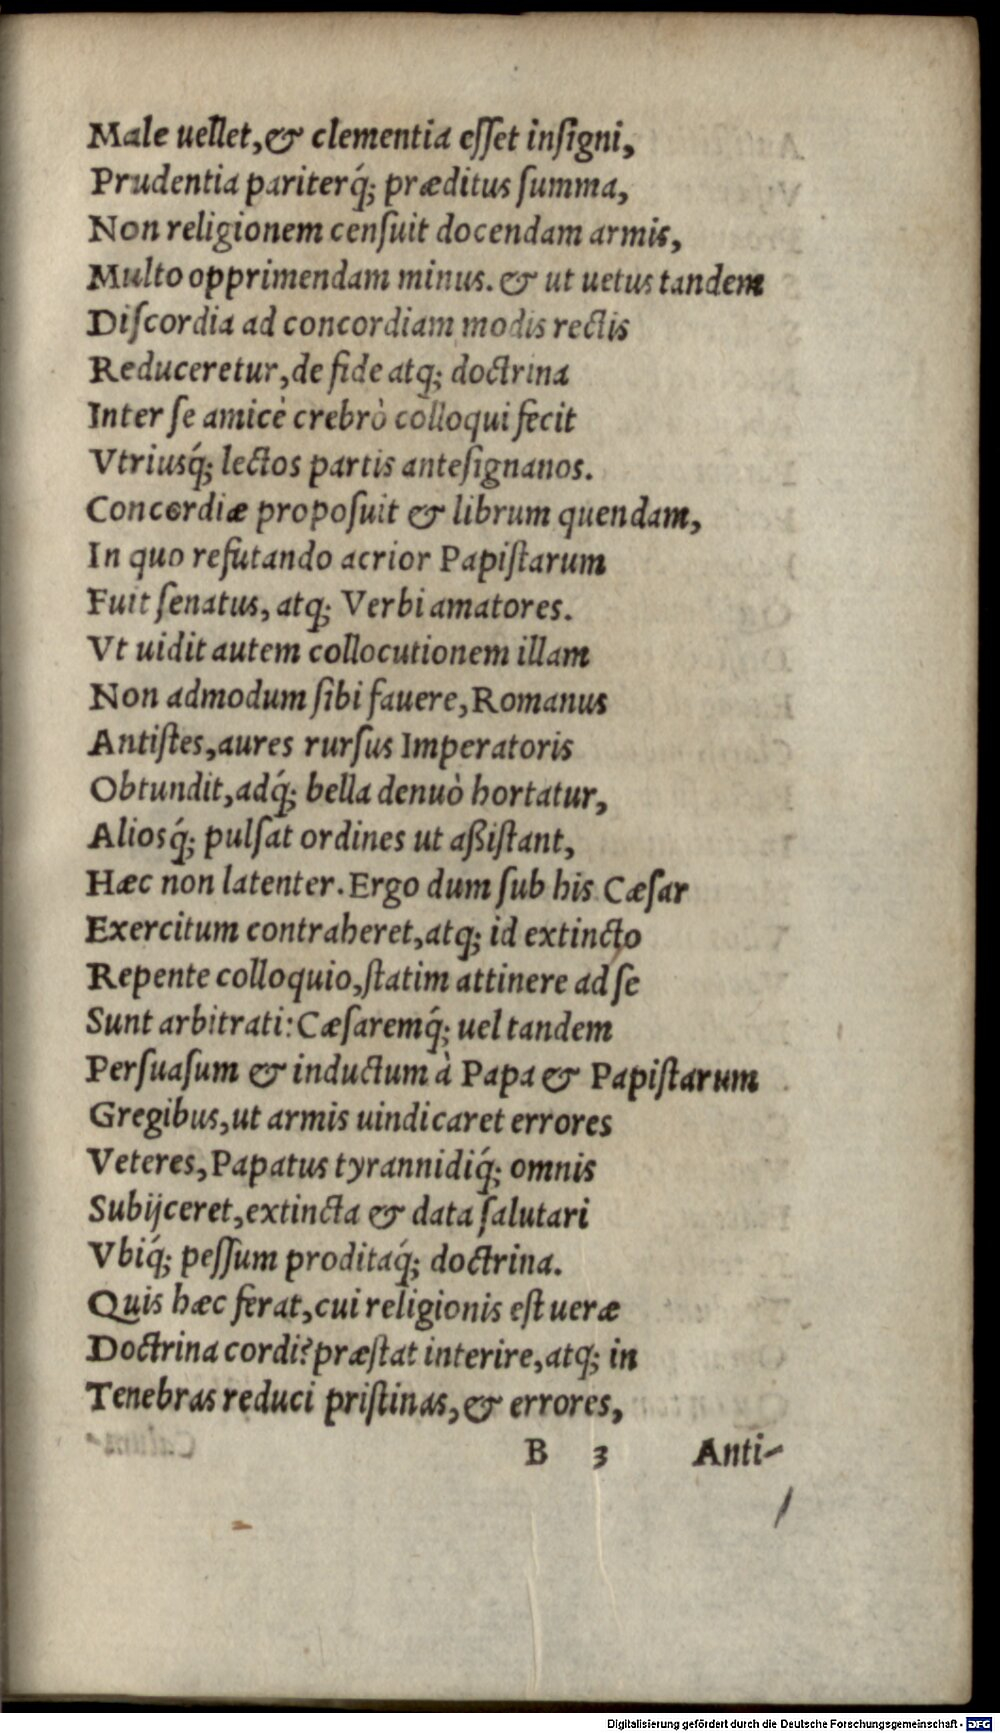 Male uellet, & clementia eſſet inſigni,
Prudentia pariterq́; præditus ſumma,
Non religionem cenſuit docendam armis,
Multo opprimendam minus. & ut uetus tandem
Diſcordia ad concordiam modis rectis
Reduceretur, de fide atq; doctrina
Inter ſe amicè crebrò colloqui fecit
Vtriusq́; lectos partis anteſignanos.
Concordiæ propoſuit & librum quendam,
In quo refutando acrior Papiſtarum
Fuit ſenatus, atq; Verbi amatores.
Vt uidit autem collocutionem illam
Non admodum ſibi fauere, Romanus
Antiſtes, aures rurſus Imperatoris
Obtundit, adq́; bella denuò hortatur,
Aliosq́; pulſat ordines ut aßiſtant,
Hæc non latenter. Ergo dum ſub his Cæſar
Exercitum contraheret, atq; id extincto
Repente colloquio, ſtatim attinere ad ſe
Sunt arbitrati: Cæſaremq́; uel tandem
Perſuaſum & inductum à Papa & Papiſtarum
Gregibus, ut armis uindicaret errores
Veteres, Papatus tyrannidiq́; omnis
Subijceret, extincta & data ſalutari
Vbiq́; peſſum proditaq́; doctrina.
Quis hæc ferat, cui religionis eſt ueræ
Doctrina cordi? præſtat interire, atq; in
Tenebras reduci priſtinas, & errores,
B 3 Anti-
Digitalisierung gefördert durch die Deutsche Forschungsgemeinschaft - DFG